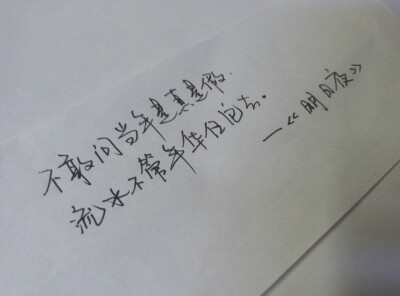 不敢问当年是真是假.
流水不管年华任它去.
—《明日夜》